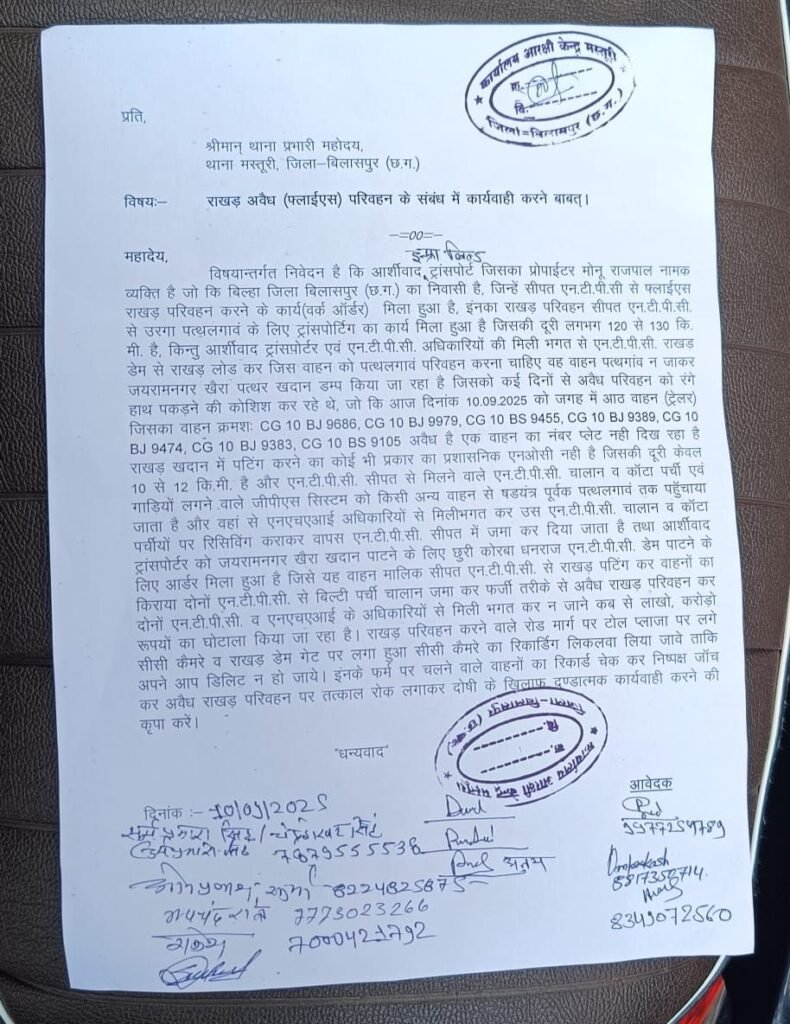 कार्यालय आरक्षी केन्द्र मस्तूरी
जिला-बिलासपुर (छ.ग.)
प्रति,
श्रीमान् थाना प्रभारी महोदय,
थाना मस्तूरी, जिला–बिलासपुर (छ.ग.)
विषयः– राखड़ अवैध (फ्लाईएस) परिवहन के संबंध में कार्यवाही करने बाबत्।
–=00=–
महादेय,
इन्फ्रा बिल्ड
विषयान्तर्गत निवेदन है कि आर्शीवाद ट्रांसपोर्ट जिसका प्रोपाईटर मोनू राजपाल नामक
व्यक्ति है जो कि बिल्हा जिला बिलासपुर (छ.ग.) का निवासी है, जिन्हें सीपत एन.टी.पी.सी. से फ्लाईएस
राखड़ परिवहन करने के कार्य(वर्क ऑर्डर) मिला हुआ है, इंनका राखड़ परिवहन सीपत एन.टी.पी.सी.
से उरगा पत्थलगावं के लिए ट्रांसपोर्टिग का कार्य मिला हुआ है जिसकी दूरी लगभग 120 से 130 कि.
मी. है, किन्तु आर्शीवाद ट्रांसपोर्टर एवं एन.टी.पी.सी. अधिकारियों की मिली भगत से एन.टी.पी.सी. राखड़
डेम से राखड़ लोड कर जिस वाहन को पत्थलगावं परिवहन करना चाहिए वह वाहन पत्थगांव न जाकर
जयरामनगर खैरा पत्थर खदान डम्प किया जा रहा है जिसको कई दिनों से अवैध परिवहन को रंगे
हाथ पकड़ने की कोशिश कर रहे थे, जो कि आज दिनांक 10.09.2025 को जगह में आठ वाहन (ट्रेलर)
जिसका वाहन क्रमशः CG 10 BJ 9686, CG 10 BJ 9979, CG 10 BS 9455, CG 10 BJ 9389, CG 10
BJ 9474, CG 10 BJ 9383, CG 10 BS 9105 अवैध है एक वाहन का नंबर प्लेट नही दिख रहा है
राखड़ खदान में पटिंग करने का कोई भी प्रकार का प्रशासनिक एनओसी नही है जिसकी दूरी केवल
10 से 12 कि.मी. है और एन.टी.पी.सी. सीपत से मिलने वाले एन.टी.पी.सी. चालान व कॉटा पर्ची एवं
गाडियों लगने वाले जीपीएस सिस्टम को किसी अन्य वाहन से षडयंत्र पूर्वक पत्थलगावं तक पहुँचाया
जाता है और वहां से एनएचएआई अधिकारियों से मिलीभगत कर उस एन.टी.पी.सी. चालान व कॉटा
पर्चीयों पर रिसिविंग कराकर वापस एन.टी.पी.सी. सीपत में जमा कर दिया जाता है तथा आर्शीवाद
ट्रांसपोर्टर को जयरामनगर खैरा खदान पाटने के लिए छुरी कोरबा धनराज एन.टी.पी.सी. डेम पाटने के
लिए आर्डर मिला हुआ है जिसे यह वाहन मालिक सीपत एन.टी.पी.सी. से राखड़ पटिंग कर वाहनों का
किराया दोनों एन.टी.पी.सी. से बिल्टी पर्ची चालान जमा कर फर्जी तरीके से अवैध राखड़ परिवहन कर
दोनों एन.टी.पी.सी. व एनएचएआई के अधिकारियों से मिली भगत कर न जाने कब से लाखो, करोड़ो
रूपयों का घोटाला किया जा रहा है। राखड़ परिवहन करने वाले रोड मार्ग पर टोल प्लाजा पर लगे
सीसी कैमरे व राखड़ डेम गेट पर लगा हुआ सीसी कैमरे का रिकार्डिंग लिकलवा लिया जावे ताकि
अपने आप डिलिट न हो जाये। इनके फर्म पर चलने वाले वाहनों का रिकार्ड चेक कर निष्पक्ष जॉच
कर अवैध राखड़ परिवहन पर तत्काल रोक लगाकर दोषी के खिलाफ दण्डात्मक कार्यवाही करने की
कृपा करें।
"धन्यवाद"
कार्यालय आरक्षी केन्द्र मस्तूरी
जिला-बिलासपुर (छ.ग.)
दिनांक :- 10/09/2025
आवेदक
9977254789
7879555538
अनुज
8224825875
8817356714
7773023266
8349072560
राकेश 7000421792